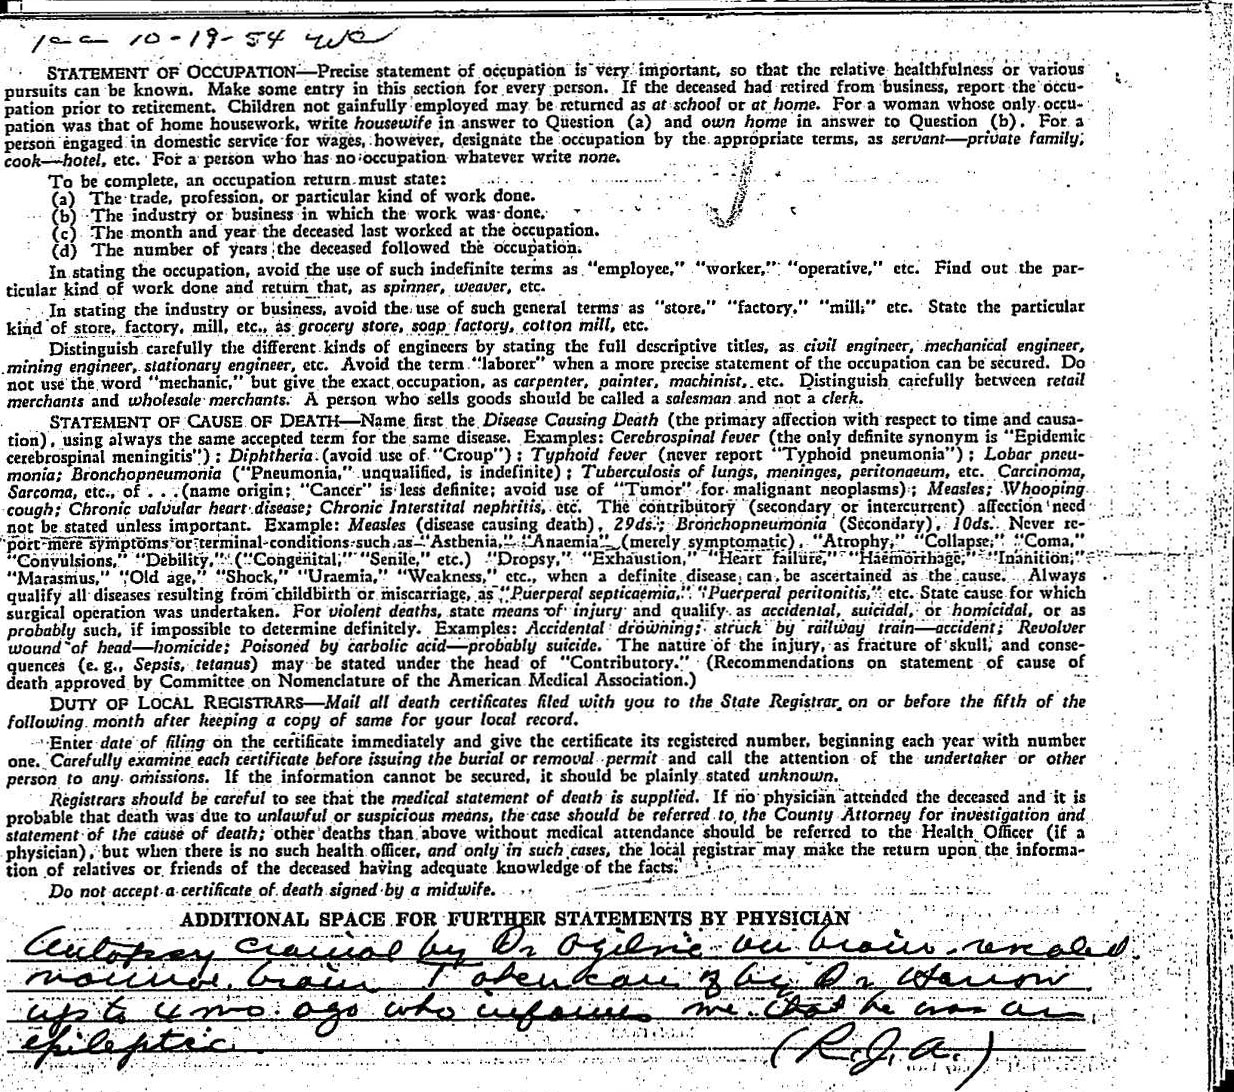 10-19-54
STATEMENT OF OCCUPATION—Precise statement of occupation is very important, so that the relative healthfulness or various
pursuits can be known. Make some entry in this section for every person. If the deceased had retired from business, report the occu-
pation prior to retirement. Children not gainfully employed may be returned as at school or at home. For a woman whose only occu-
pation was that of home housework, write housewife in answer to Question (a) and own home in answer to Question (b). For a
person engaged in domestic service for wages, however, designate the occupation by the appropriate terms, as servant—private family,
cook—hotel, etc. For a person who has no occupation whatever write none.
To be complete, an occupation return must state:
(a) The trade, profession, or particular kind of work done.
(b) The industry or business in which the work was done.
(c) The month and year the deceased last worked at the occupation.
(d) The number of years the deceased followed the occupation.
In stating the occupation, avoid the use of such indefinite terms as "employee," "worker," "operative," etc. Find out the par-
ticular kind of work done and return that, as spinner, weaver, etc.
In stating the industry or business, avoid the use of such general terms as "store," "factory," "mill," etc. State the particular
kind of store, factory, mill, etc., as grocery store, soap factory, cotton mill, etc.
Distinguish carefully the different kinds of engineers by stating the full descriptive titles, as civil engineer, mechanical engineer,
mining engineer, stationary engineer, etc. Avoid the term "laborer" when a more precise statement of the occupation can be secured. Do
not use the word "mechanic," but give the exact occupation, as carpenter, painter, machinist, etc. Distinguish carefully between retail
merchants and wholesale merchants. A person who sells goods should be called a salesman and not a clerk.
STATEMENT OF CAUSE OF DEATH—Name first the Disease Causing Death (the primary affection with respect to time and causa-
tion), using always the same accepted term for the same disease. Examples: Cerebrospinal fever (the only definite synonym is "Epidemic
cerebrospinal meningitis"); Diphtheria (avoid use of "Croup"); Typhoid fever (never report "Typhoid pneumonia"); Lobar pneu-
monia; Bronchopneumonia ("Pneumonia," unqualified, is indefinite); Tuberculosis of lungs, meninges, peritonaeum, etc. Carcinoma,
Sarcoma, etc., of . . . (name origin; "Cancer" is less definite; avoid use of "Tumor" for malignant neoplasms); Measles; Whooping
cough; Chronic valvular heart disease; Chronic Interstital nephritis, etc. The contributory (secondary or intercurrent) affection need
not be stated unless important. Example: Measles (disease causing death), 29ds.; Bronchopneumonia (Secondary), 10ds. Never re-
port mere symptoms or terminal conditions such as "Asthenia," "Anaemia" (merely symptomatic), "Atrophy," "Collapse," "Coma,"
"Convulsions," "Debility," ("Congenital," "Senile," etc.) "Dropsy," "Exhaustion," "Heart failure," "Haemorrhage," "Inanition,"
"Marasmus," "Old age," "Shock," "Uraemia," "Weakness," etc., when a definite disease can be ascertained as the cause. Always
qualify all diseases resulting from childbirth or miscarriage, as "Puerperal septicaemia," "Puerperal peritonitis," etc. State cause for which
surgical operation was undertaken. For violent deaths, state means of injury and qualify as accidental, suicidal, or homicidal, or as
probably such, if impossible to determine definitely. Examples: Accidental drowning; struck by railway train—accident; Revolver
wound of head—homicide; Poisoned by carbolic acid—probably suicide. The nature of the injury, as fracture of skull, and conse-
quences (e. g., Sepsis, tetanus) may be stated under the head of "Contributory." (Recommendations on statement of cause of
death approved by Committee on Nomenclature of the American Medical Association.)
DUTY OF LOCAL REGISTRARS—Mail all death certificates filed with you to the State Registrar on or before the fifth of the
following month after keeping a copy of same for your local record.
Enter date of filing on the certificate immediately and give the certificate its registered number, beginning each year with number
one. Carefully examine each certificate before issuing the burial or removal permit and call the attention of the undertaker or other
person to any omissions. If the information cannot be secured, it should be plainly stated unknown.
Registrars should be careful to see that the medical statement of death is supplied. If no physician attended the deceased and it is
probable that death was due to unlawful or suspicious means, the case should be referred to the County Attorney for investigation and
statement of the cause of death; other deaths than above without medical attendance should be referred to the Health Officer (if a
physician), but when there is no such health officer, and only in such cases, the local registrar may make the return upon the informa-
tion of relatives or friends of the deceased having adequate knowledge of the facts.
Do not accept a certificate of death signed by a midwife.
ADDITIONAL SPACE FOR FURTHER STATEMENTS BY PHYSICIAN
Autopsy cranial by Dr Ogilvie on brain revealed
normal brain Taken care of by Dr Harrow
up to 4 mo. ago who informs me that he was an
epileptic.
(R.J.A.)